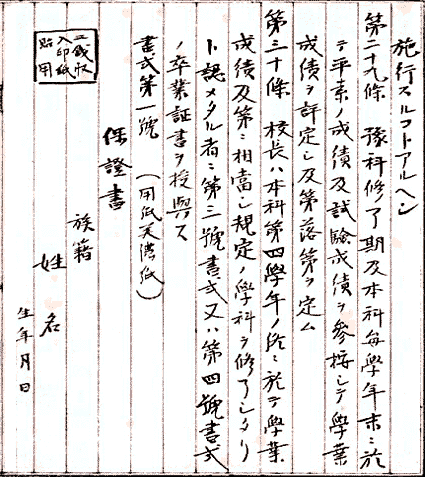 施行スルコトアルヘシ
第二十九條 豫科修了期及本科每學年末ニ於
テ平素ノ成績及試驗成績ヲ參按シテ學業
成績ヲ評定シ及第落第ヲ定ム
第三十條 校長ハ本科第四學年ノ終ニ於テ學業
成績及第ニ相當シ規定ノ學科ヲ修了シタリ
ト認メタル者ニ第三號書式又ハ第四號書式
ノ卒業証書ヲ授與ス
書式第一號 （用紙美濃紙）
保證書
族籍
姓名
生年月日
五錢収
入印紙
貼用